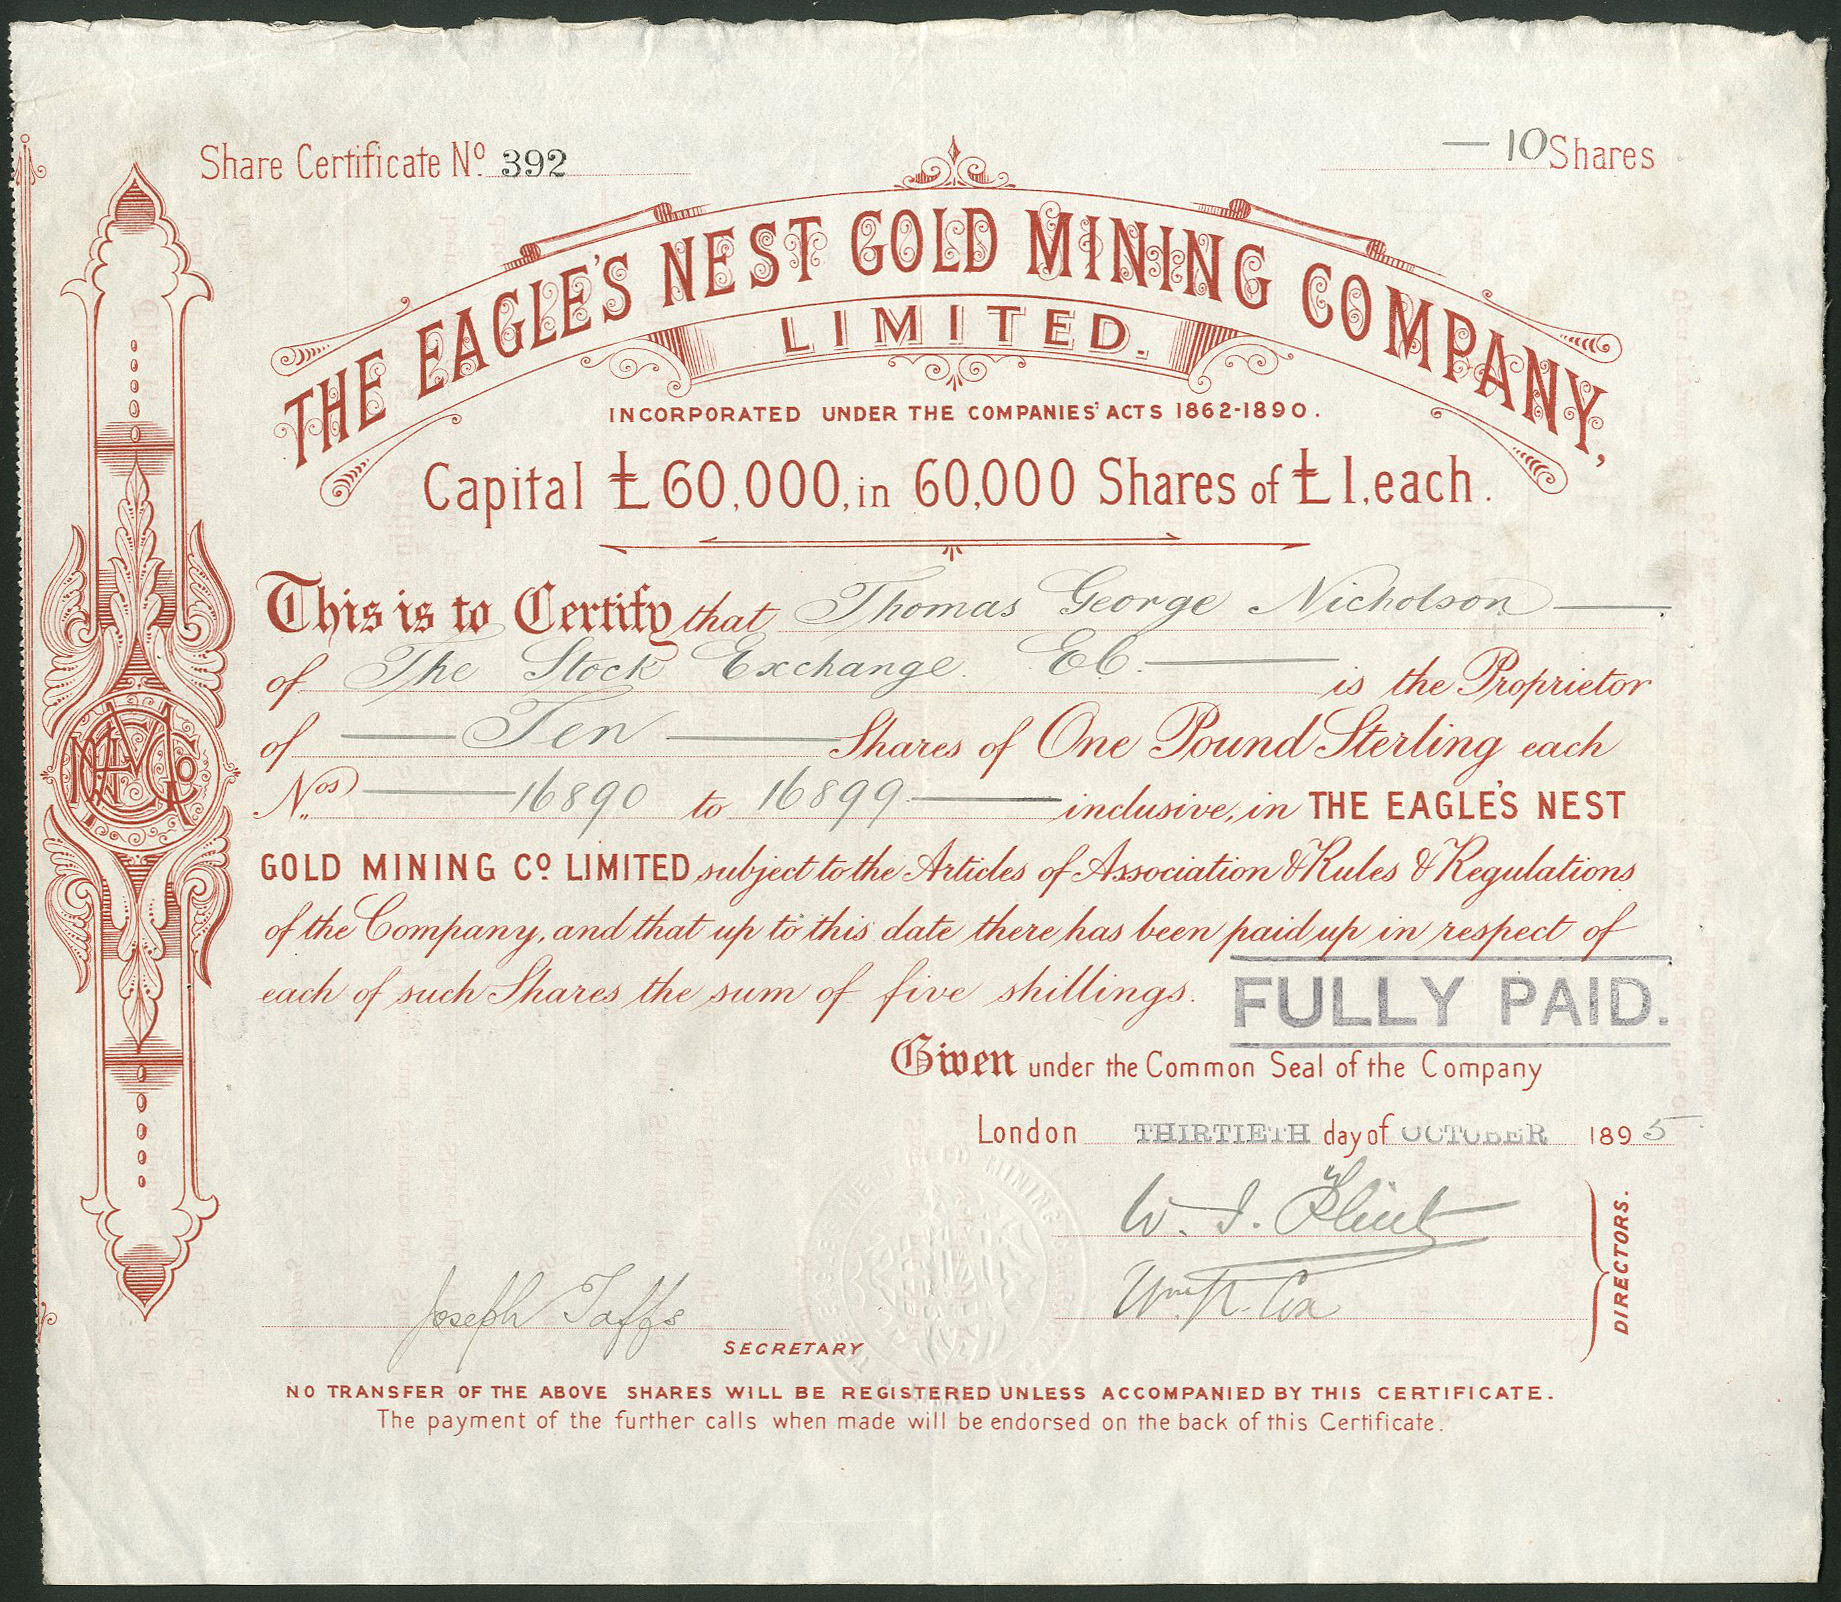 Share Certificate Nº 392
— 10 Shares
THE EAGLE'S NEST GOLD MINING COMPANY,
LIMITED.
INCORPORATED UNDER THE COMPANIES' ACTS 1862-1890.
Capital £60,000, in 60,000 Shares of £1, each.
This is to Certify that Thomas George Nicholson —
of The Stock Exchange. E.C. — is the Proprietor
of — Ten — Shares of One Pound Sterling each
Nos — 16890 to 16899 — inclusive, in THE EAGLE'S NEST
GOLD MINING Cº LIMITED subject to the Articles of Association & Rules & Regulations
of the Company, and that up to this date there has been paid up in respect of
each of such Shares the sum of five shillings.
FULLY PAID.
Given under the Common Seal of the Company
London THIRTIETH day of OCTOBER 1895
W. J. Flint
Wm. R. Cox
DIRECTORS.
Joseph Taffs
SECRETARY
NO TRANSFER OF THE ABOVE SHARES WILL BE REGISTERED UNLESS ACCOMPANIED BY THIS CERTIFICATE.
The payment of the further calls when made will be endorsed on the back of this Certificate.